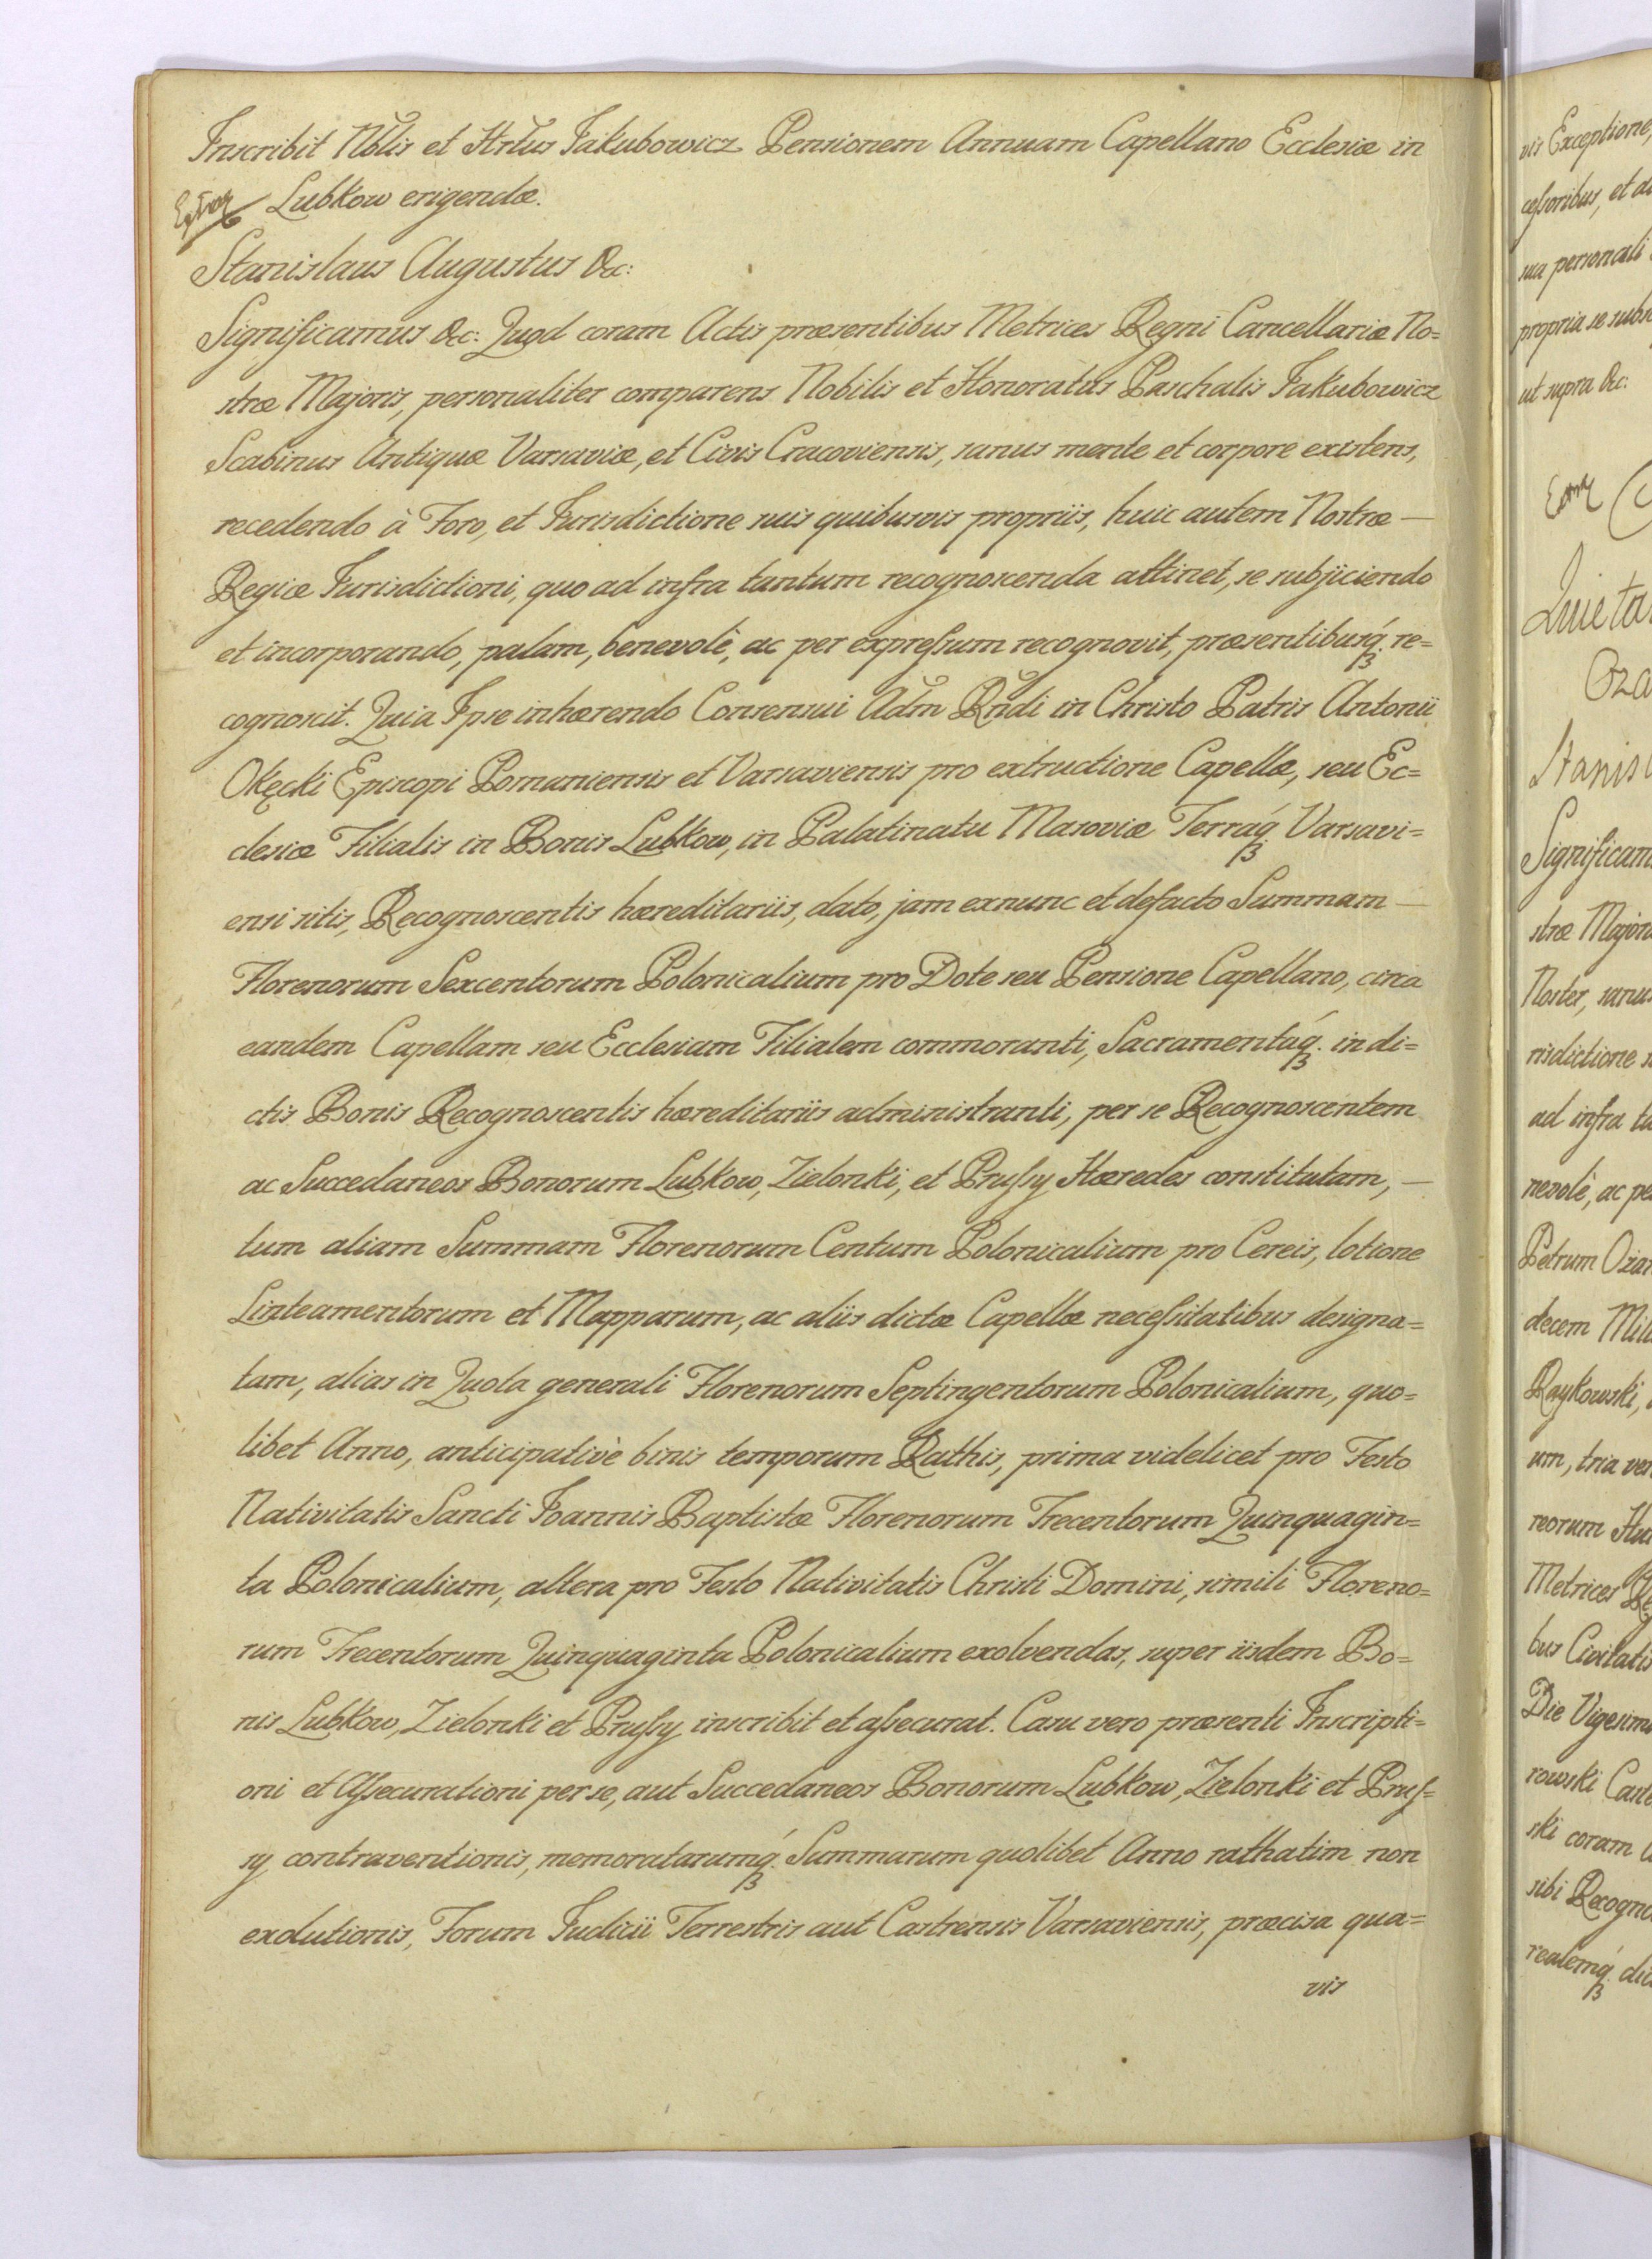 Inscribit Nblis et Hrtus Jakubowicz Pensionem Annuam Capellano Ecclesiæ in
Lubkow erigendæ.
Stanislaus Augustus &c:
Significamus &c: Quod coram Actis præsentibus Metrices Regni Cancellariæ No=
stræ Majoris, personaliter comparens Nobilis et Honoratus Paschalis Jakubowicz
Scabinus Antiquæ Varsaviæ, et Civis Cracoviensis, sanus mente et corpore existens,
recedendo à Foro, et Jurisdictione suis quibusvis propriis, huic autem Nostræ —
Regiæ Jurisdictioni, quo ad infra tantum recognoscenda attinet, se subjiciendo
et incorporando, palam, benevolè, ac per expreſsum recognovit, præsentibusq́ꝫ re=
cognoscit. Quia Ipse inhærendo Consensui Adm Rndi in Christo Patris Antonii
Okęcki Episcopi Posnaniensis et Varsaviensis pro extructione Capellæ, seu Ec=
clesiæ Filialis in Bonis Lubkow, in Palatinatu Masoviæ Terráq́ꝫ Varsavi=
ensi sitis, Recognoscentis hæreditariis, dato, jam exnunc et defacto Summam —
Florenorum Sexcentorum Polonicalium pro Dote seu Pensione Capellano, circa
eandem Capellam seu Ecclesiam Filialem commoranti, Sacramentáq́ꝫ in di=
ctis Bonis Recognoscentis hæreditariis administranti, per se Recognoscentem
ac Succedaneos Bonorum Lubkow, Zielonki, et Pruſsy Hæredes constitutam, —
tum aliam Summam Florenorum Centum Polonicalium pro Cereis, lotione
Linteamentorum et Mapparum, ac aliis dictæ Capellæ neceſsitatibus designa=
tam, alias in Quota generali Florenorum Septingentorum Polonicalium, quo=
libet Anno, anticipativè binis temporum Rathis, prima videlicet pro Festo
Nativitatis Sancti Joannis Baptistæ Florenorum Trecentorum Quinquagin=
ta Polonicalium, altera pro Festo Nativitatis Christi Domini, simili Floreno=
rum Trecentorum Quinquaginta Polonicalium exolvendas, super iisdem Bo=
nis Lubkow, Zielonki et Pruſsy inscribit et aſsecurat. Casu vero præsenti Inscripti=
oni et Aſsecurationi per se, aut Succedaneos Bonorum Lubkow, Zielonki et Pruſ=
sy contraventionis, memoratarumq́ꝫ Summarum quolibet Anno rathatim non
exolutionis, Forum Judicii Terrestris aut Castrensis Varsaviensis, præcisa qua=
vis
vis Exceptione,
ceſsoribus, et
sua personali
propria se
ut supra &c:
Stanis
Significam
stræ Majoris
Noster, sanus
risdictione
ad infra
nevolè, ac
Petrum
decem
Raykowski,
um, tria
reorum
Metrices
bus Civitatis
Die Vigesima
rowski
ski coram
sibi Recogno
realemq́ꝫ